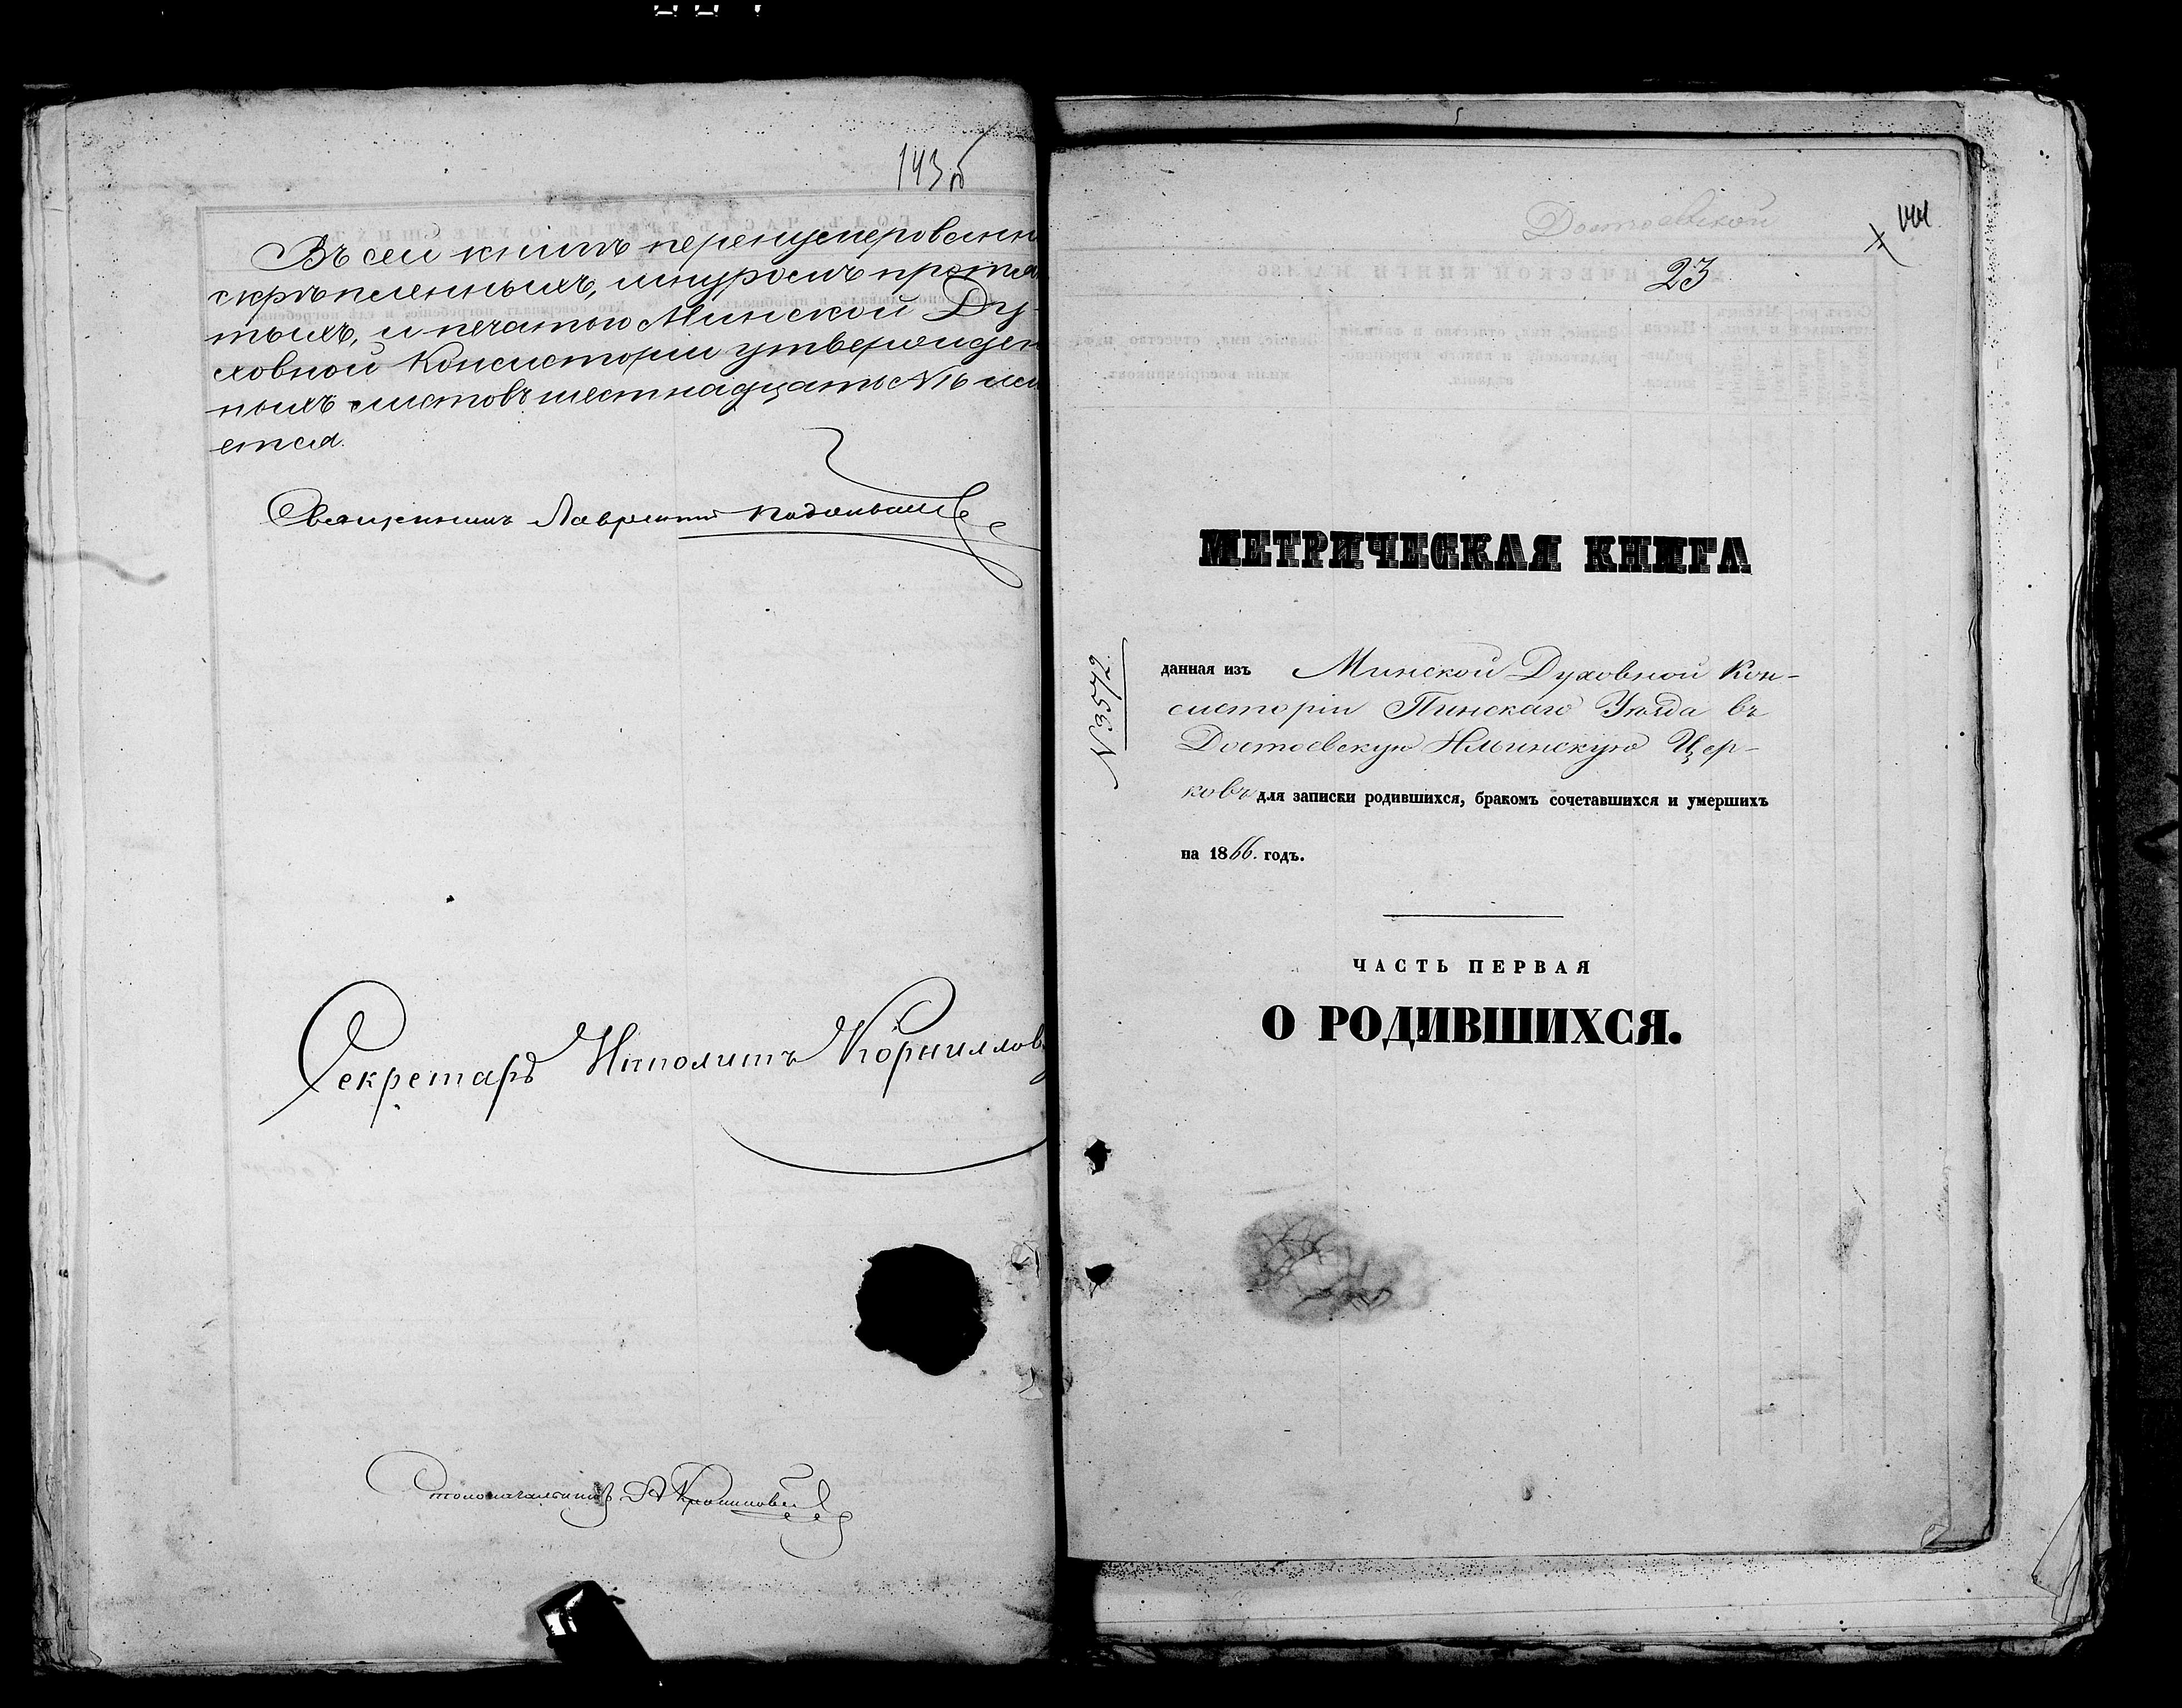 143 об
Въ сей книгѣ перенумерованн
скрѣпленныхъ, шнуромъ протя
тыхъ, и печатью Минской Ду-
ховной Консисторіи утвержден
ныхъ листовъ шестнадцать №16 име
ется.
Священникъ Лаврентій
Секретарь Ипполитъ Корнилов
Столоначальникъ А
Достоевской
144
23
МЕТРИЧЕСКАЯ КНИГА
№3572
данная изъ Минской Духовной Кон-
систоріи Пинскаго Уѣзда въ
Достоевскую Ильинскую Цер-
ковь для записки родившихся, бракомъ сочетавшихся и умершихъ
на 1866. годъ.
ЧАСТЬ ПЕРВАЯ
О РОДИВШИХСЯ.